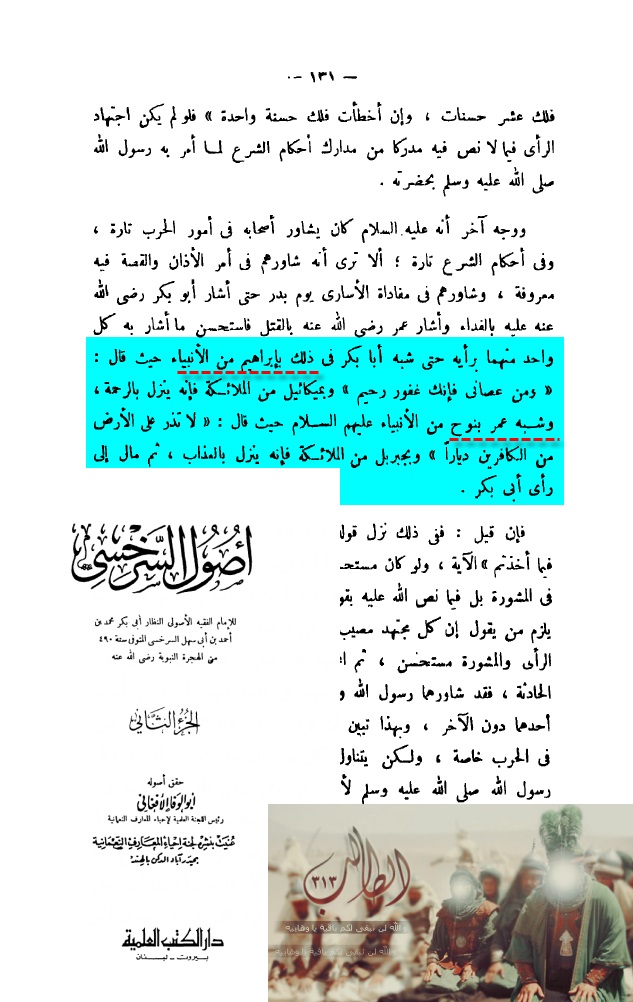 — ١٣١ —
فلك عشر حسنات ، وإن أخطأت فلك حسنة واحدة » فلو لم يكن اجتهاد
الرأى فيما لا نص فيه مدركا من مدارك أحكام الشرع لما أمر به رسول الله
صلى الله عليه وسلم بحضرته .
ووجه آخر أنه عليه السلام كان يشاور أصحابه فى أمور الحرب تارة ،
وفى أحكام الشرع تارة ؛ ألا ترى أنه شاورهم فى أمر الأذان والقصة فيه
معروفة ، وشاورهم فى مفاداة الأسارى يوم بدر حتى أشار أبو بكر رضى الله
عنه عليه بالفداء وأشار عمر رضى الله عنه بالقتل فاستحسن ما أشار به كل
واحد منهما برأيه حتى شبه أبا بكر فى ذلك بإبراهيم من الأنبياء حيث قال :
« ومن عصانى فإنك غفور رحيم » وبميكائيل من الملائكة فإنه ينزل بالرحمة ،
وشبه عمر بنوح من الأنبياء عليهم السلام حيث قال : « لا تذر على الأرض
من الكافرين دياراً » وبجبريل من الملائكة فإنه ينزل بالعذاب ، ثم مال إلى
رأى أبى بكر .
فإن قيل : ففى ذلك نزل قوله
فيما أخذتم » الآية ، ولو كان مستحـ
فى المشورة بل فيما نص الله عليه بقو
يلزم من يقول إن كل مجتهد مصيب
الرأى والمشورة مستحسن ، ثم
الحادثة ، فقد شاورهما رسول الله و
أحدهما دون الآخر ، وبهذا تبين
فى الحرب خاصة ، ولكن يتناول
رسول الله صلى الله عليه وسلم لأ
أصول السرخسى
للإمام الفقيه الأصولى النظار أبى بكر محمد بن
أحمد بن أبى سهل السرخسى المتوفى سنة ٤٩٠
من الهجرة النبوية رضى الله عنه
الجزء الثانى
حقق أصوله
أبو الوفا الأفغانى
رئيس اللجنة العلمية لإحياء المعارف النعمانية
عنيت بنشره لجنة إحياء المعارف النعمانية
بحيدرآباد الدكن بالهند
دار الكتب العلمية
بيروت - لبنان
الطالب
٣١٣
والله لن تبقى لكم باقية يا وهابية
والله لن تبقى لكم باقية يا وهابية